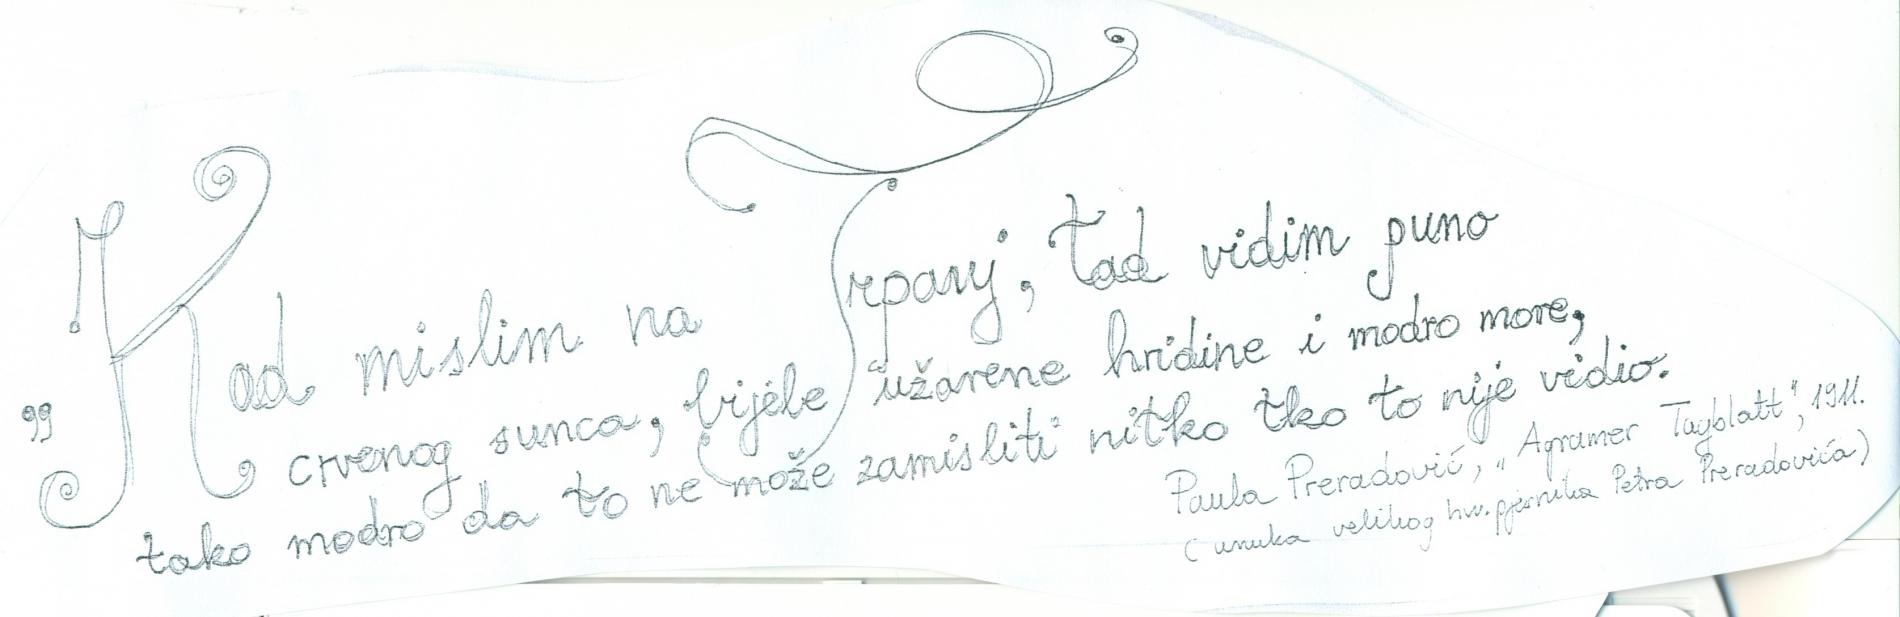 „Kad mislim na Trpanj, tad vidim puno
crvenog sunca, bijele užarene hridine i modro more,
tako modro da to ne može zamisliti nitko tko to nije vidio.
Paula Preradović, „Agramer Tagblatt", 1911.
(unuka velikog hrv. pjesnika Petra Preradovića)